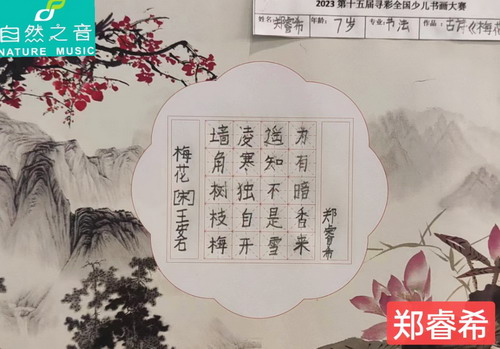 自然之音
NATURE MUSIC
2023 第十五届寻彩全国少儿书画大赛
姓名:郑睿希 年龄:7岁 专业:书法 作品:古诗《梅花
梅花 [宋] 王安石
墙角树枝梅
凌寒独自开
遥知不是雪
为有暗香来
郑睿希
郑睿希